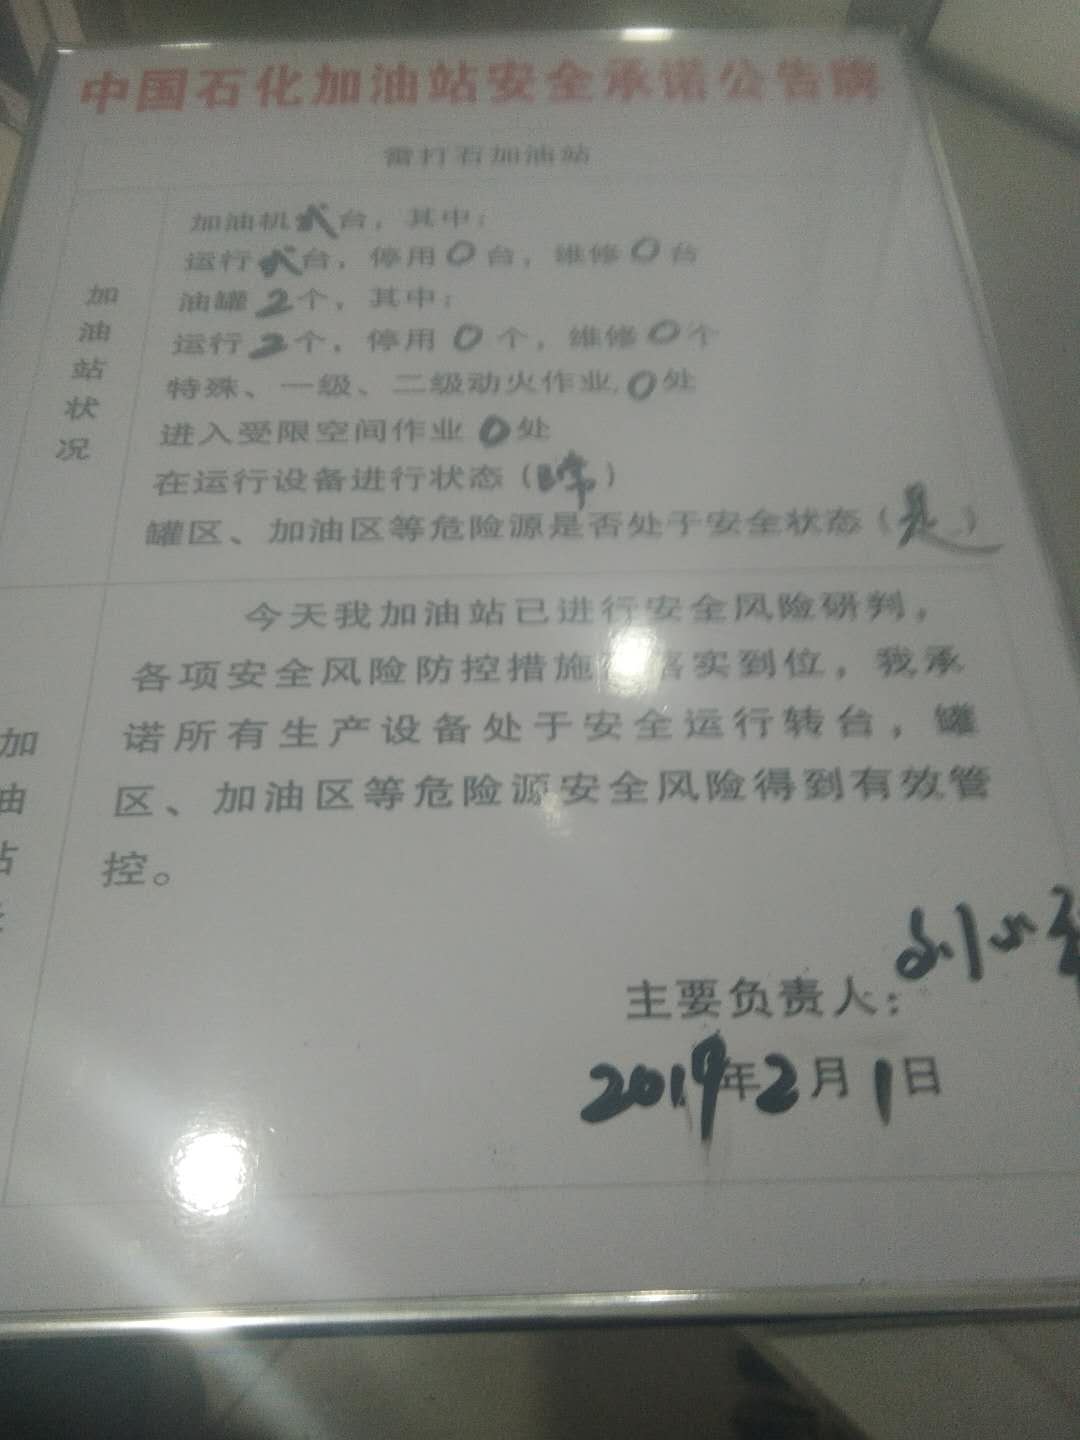 中国石化加油站安全承诺公告牌
雷打石加油站
加油站状况
加油机弍台，其中：
运行弍台，停用0台，维修0台
油罐2个，其中：
运行2个，停用0个，维修0个
特殊、一级、二级动火作业0处
进入受限空间作业0处
在运行设备进行状态（正常）
罐区、加油区等危险源是否处于安全状态（是）
加油站
今天我加油站已进行安全风险研判，
各项安全风险防控措施 落实到位，我承
诺所有生产设备处于安全运行转台，罐
区、加油区等危险源安全风险得到有效管
控。
主要负责人：刘小
2019年2月1日